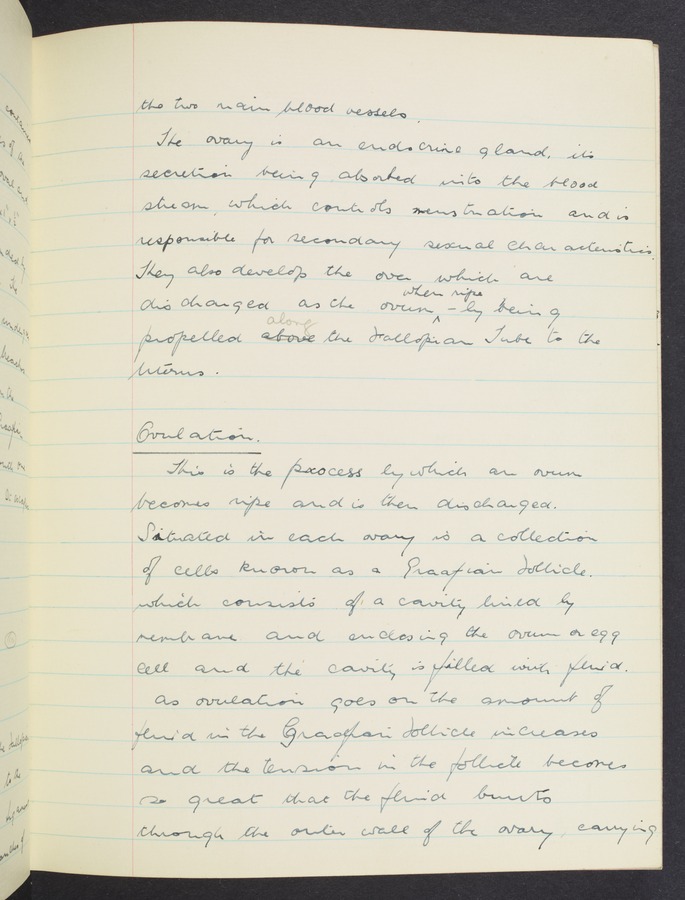 the two main blood vessels.
The ovary is an endocrine gland, its
secretion being absorbed into the blood
stream, which controls menstruation and is
responsible for secondary sexual characteristics.
They also develop the ova which are
discharged as the ovum, when ripe - by being
propelled above along the Fallopian Tube to the
Uterus.
Ovulation.
This is the process by which an ovum
becomes ripe and is then discharged.
Situated in each ovary is a collection
of cells known as a Graafian Follicle.
which consists of a cavity lined by
membrane and enclosing the ovum or egg
cell and the cavity is filled with fluid.
as ovulation goes on the amount of
fluid in the Graafian Follicle increases
and the tension in the follicle becomes
so great that the fluid bursts
through the outer wall of the ovary, carrying